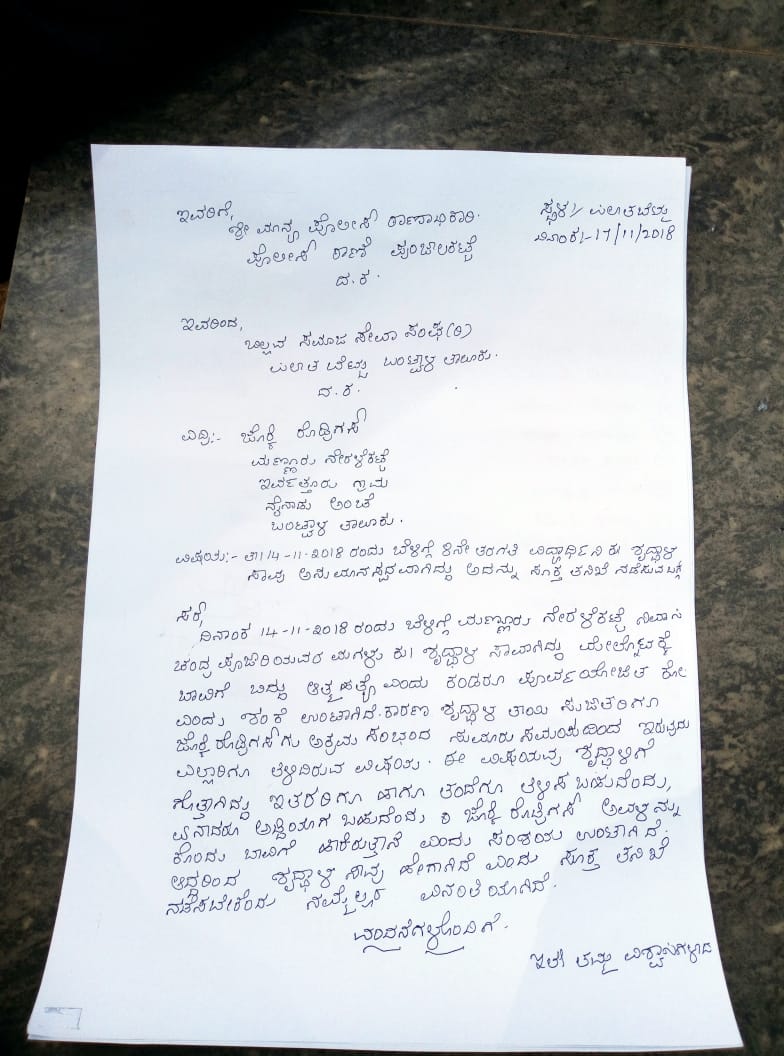 ಇವರಿಗೆ,
ಸ್ಥಳ:/ ಎಲಿಯನಡುಗೋಡು
ಶ್ರೀ ಮಾನ್ಯ ಪೊಲೀಸ್ ಠಾಣಾಧಿಕಾರಿ.
ದಿನಾಂಕ:-17/11/2018
ಪೊಲೀಸ್ ಠಾಣೆ ಪುಂಜಾಲಕಟ್ಟೆ
ದ.ಕ
ಇವರಿಂದ,
ಬಿಲ್ಲವ ಸಮಾಜ ಸೇವಾ ಸಂಘ(ರಿ)
ಬಂಟ್ವಾಳ ತಾಲೂಕು.
ದ.ಕ.
ಎದ್ರಿ:- ಜೊಕ್ಕಿ ರೊಡ್ರಿಗಸ್
ಮಣ್ಣೂರು ನೇರಳೆಕಟ್ಟೆ
ಇರ್ವತ್ತೂರು ಗ್ರಾಮ
ನೈನಾಡು ಅಂಚೆ
ಬಂಟ್ವಾಳ ತಾಲೂಕು.
ವಿಷಯ:- ತಾ|14-11-2018 ರಂದು ಬೆಳಿಗ್ಗೆ 8ನೇ ತರಗತಿ ವಿದ್ಯಾರ್ಥಿನಿ ಕು| ಶೃದ್ಧಾಳ
ಸಾವು ಅನುಮಾನಸ್ಪದವಾಗಿದ್ದು ಅದನ್ನು ಸೂಕ್ತ ತನಿಖೆ ನಡೆಸುವ ಬಗ್ಗೆ
ಸರ್,
ದಿನಾಂಕ 14-11-2018 ರಂದು ಬೆಳಿಗ್ಗೆ ಮಣ್ಣೂರು ನೇರಳೆಕಟ್ಟೆ ನಿವಾಸಿ
ಚಂದ್ರ ಪೂಜಾರಿಯವರ ಮಗಳು ಕು| ಶೃದ್ಧಾಳ ಸಾವಾಗಿದ್ದು ಮೇಲ್ನೋಟಕ್ಕೆ
ಬಾವಿಗೆ ಬಿದ್ದು ಆತ್ಮಹತ್ಯೆ ಎಂದು ಕಂಡರೂ ಪೂರ್ವಯೋಜಿತ ಕೊಲೆ
ಎಂದು ಶಂಕೆ ಉಂಟಾಗಿದೆ. ಕಾರಣ ಶೃದ್ಧಾಳ ತಾಯಿ ಸುಜಾತರಿಗೂ
ಜೊಕ್ಕಿ ರೊಡ್ರಿಗಸ್‌ಗು ಅಕ್ರಮ ಸಂಭಂದ ಸುಮಾರು ಸಮಯದಿಂದ ಇರುವುದು
ಎಲ್ಲಾರಿಗೂ ತಿಳಿದಿರುವ ವಿಷಯ. ಈ ವಿಷಯವು ಶೃದ್ಧಾಳಿಗೆ
ಗೊತ್ತಾಗಿದ್ದು ಇತರರಿಗೂ ಹಾಗೂ ತಂದೆಗೂ ತಿಳಿಸ ಬಹುದೆಂದು,
ಏನಾದರೂ ಅಡ್ಡಿಯಾಗ ಬಹುದೆಂದು ಜೊಕ್ಕಿ ರೊಡ್ರಿಗಸ್ ಅವಳನ್ನು
ಕೊಂದು ಬಾವಿಗೆ ಹಾಕಿರುತ್ತಾನೆ ಎಂದು ಸಂಶಯ ಉಂಟಾಗಿದೆ.
ಆದ್ದರಿಂದ ಶೃದ್ಧಾಳ ಸಾವು ಹೇಗಾಗಿದೆ ಎಂದು ಸೂಕ್ತ ತನಿಖೆ
ನಡೆಸಬೇಕೆಂದು ನಮ್ಮೆಲ್ಲರ ವಿನಂತಿಯಾಗಿದೆ.
ವಂದನೆಗಳೊಂದಿಗೆ.
ಇತೀ ತಮ್ಮ ವಿಶ್ವಾಸಿಗಳಾದ